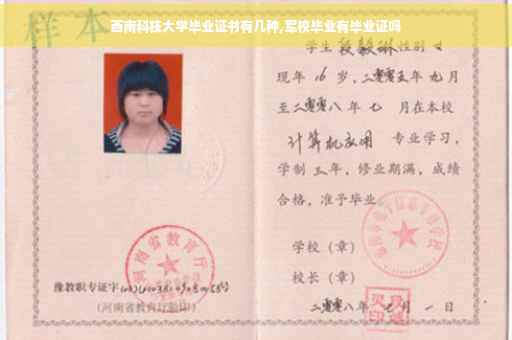 西南科技大学毕业证书有几种,军校毕业有毕业证吗
样本
学生 段毅琳 性别 女
现年 16 岁，二零零五年 九 月
至二零零八年 七 月在本校
计算机应用 专业学习，
学制 三 年，修业期满，成绩
合格，准予毕业。
学校（章）
校长（章）
二零零八年 七 月 一 日
河南省教育厅
豫教职专证字
（河南省教育厅验印）